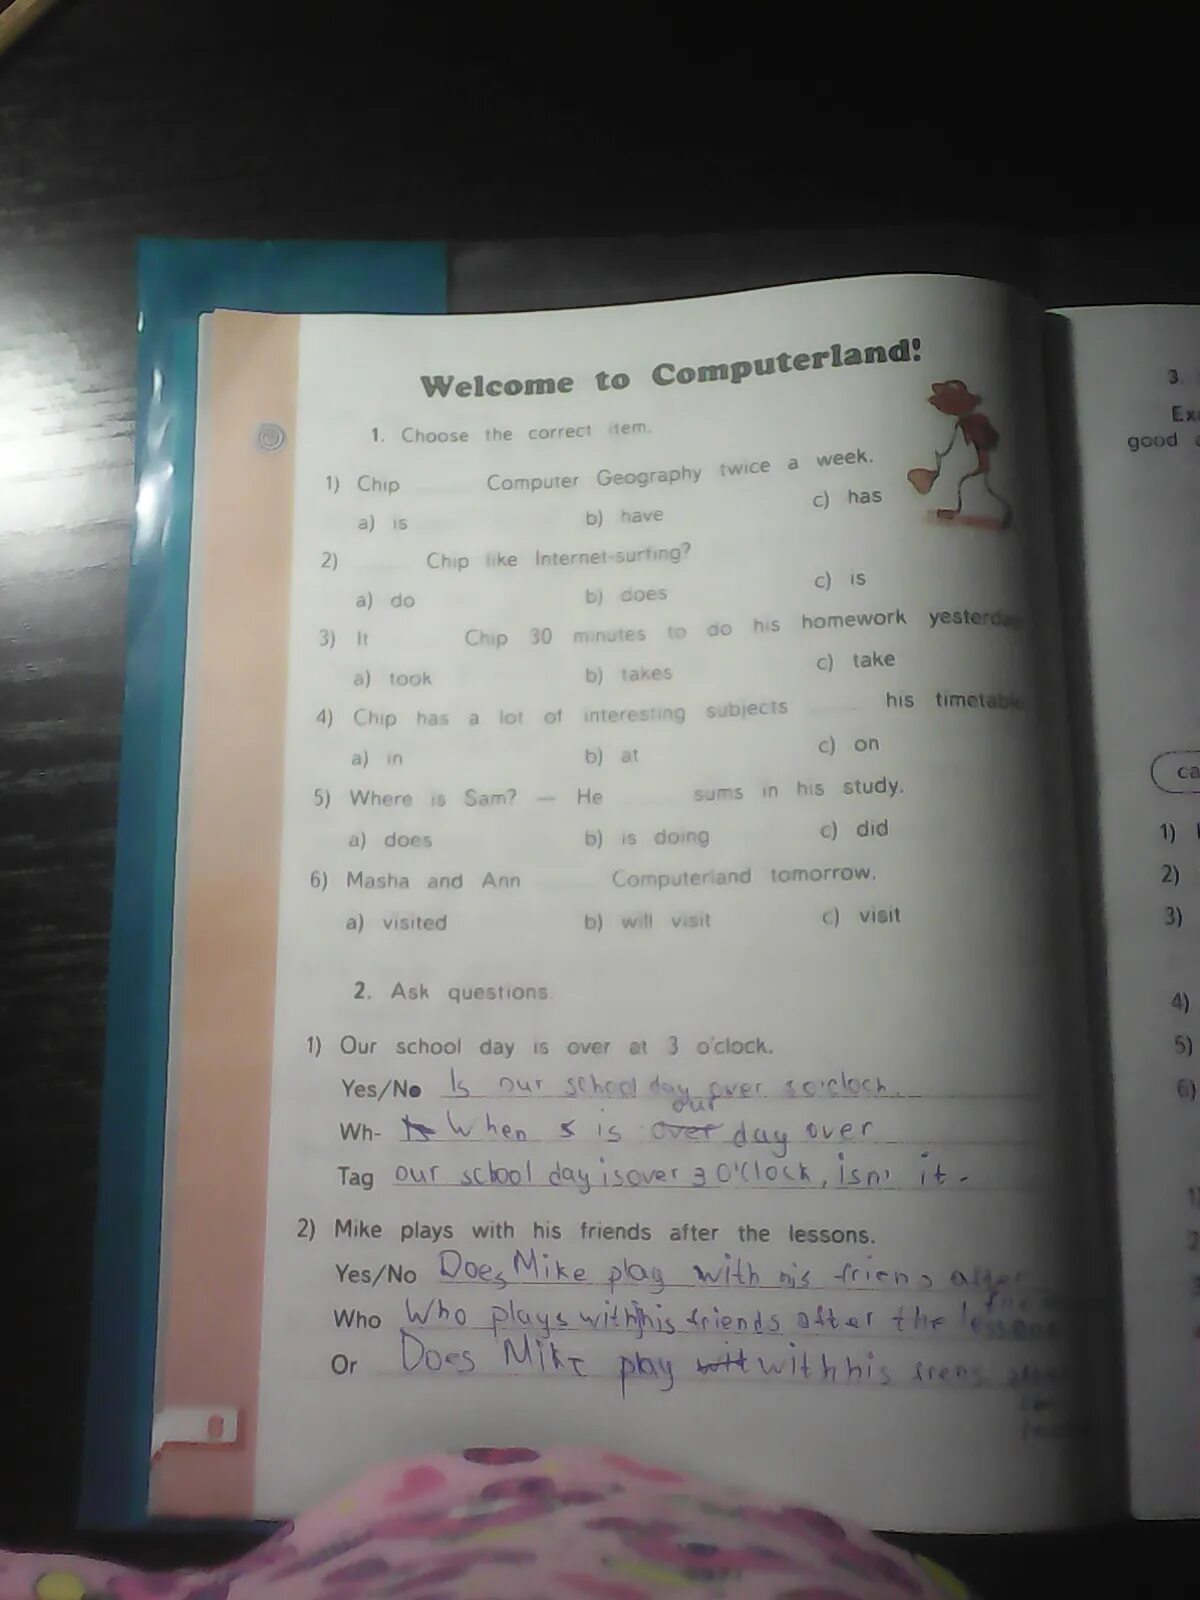 Welcome to Computerland!
1. Choose the correct item.
1) Chip ____ Computer Geography twice a week.
a) is b) have c) has
2) ____ Chip like Internet-surfing?
a) do b) does c) is
3) It Chip 30 minutes to do his homework yesterday
a) took b) takes c) take
4) Chip has a lot of interesting subjects ____ his timetable
a) in b) at c) on
5) Where is Sam? — He ____ sums in his study.
a) does b) is doing c) did
6) Masha and Ann ____ Computerland tomorrow.
a) visited b) will visit c) visit
2. Ask questions.
1) Our school day is over at 3 o'clock.
Yes/No Is our school day over 3 o'cloch.
our
Wh- When is over day over
Tag our school day is over 3 O'Clock, isn' it.
2) Mike plays with his friends after the lessons.
Yes/No Does Mike play with his friens after
Who Who plays with his friends after the lessons
Or Does Mike play wit with his frens
8
3.
Ex
good
ca
1)
2)
3)
4)
5)
6)